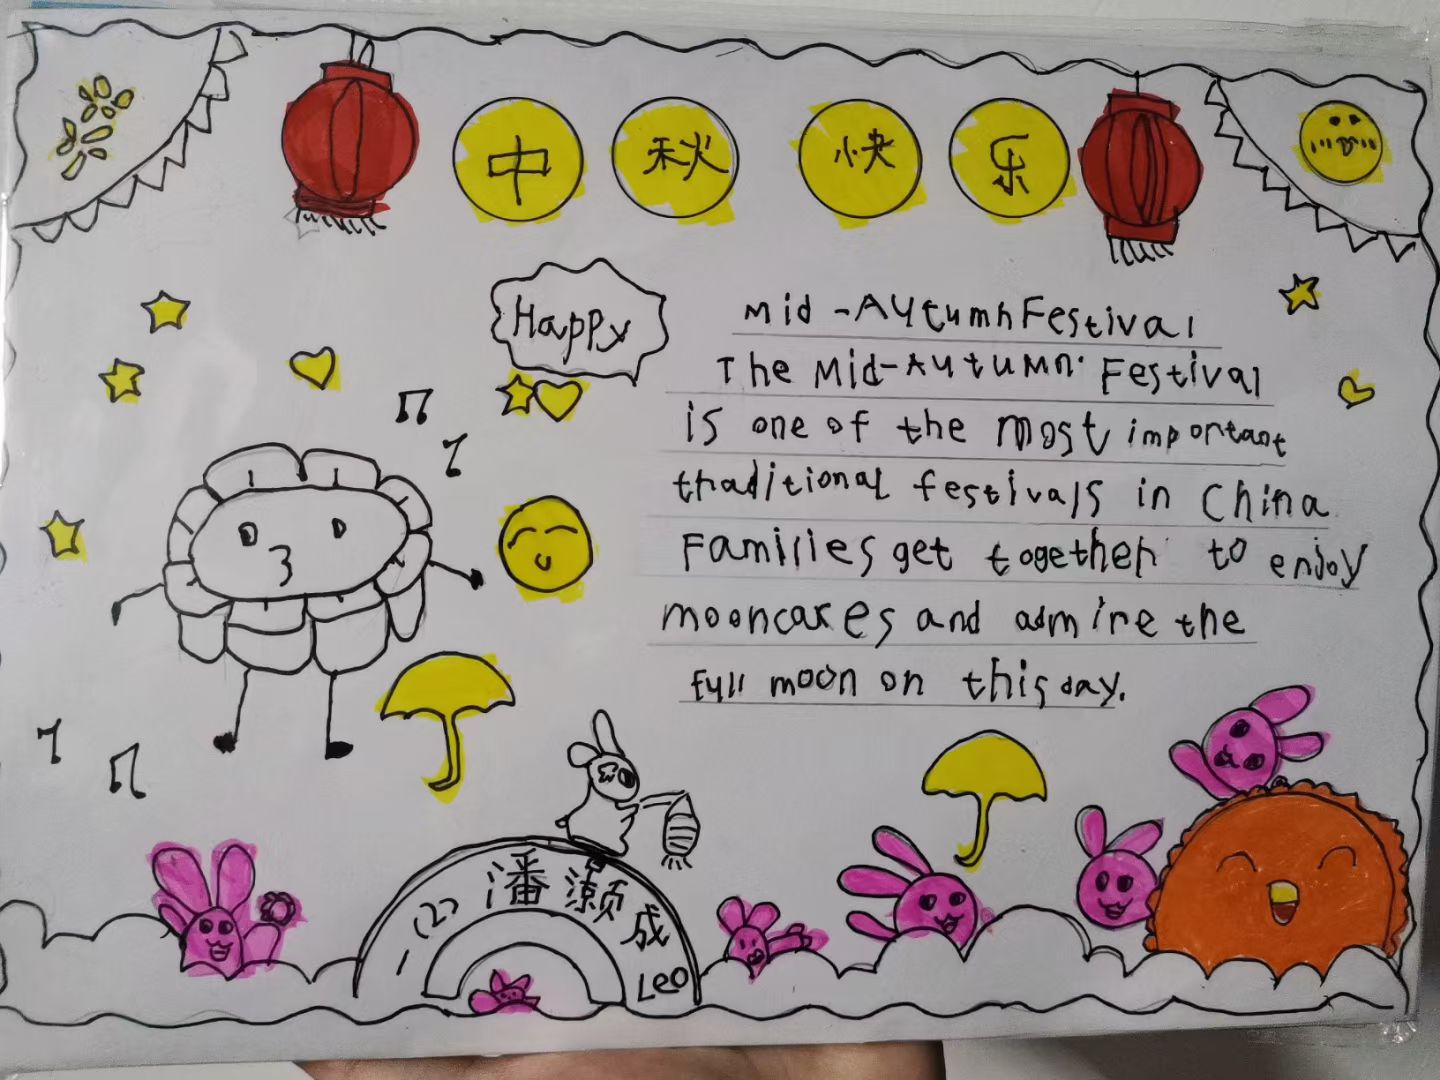 中秋 快乐
Happy
Mid-Autumn Festival
The Mid-Autumn Festival
is one of the most important
traditional festivals in China
Families get together to enjoy
mooncakes and admire the
full moon on this day.
一(2) 潘灏成
Leo